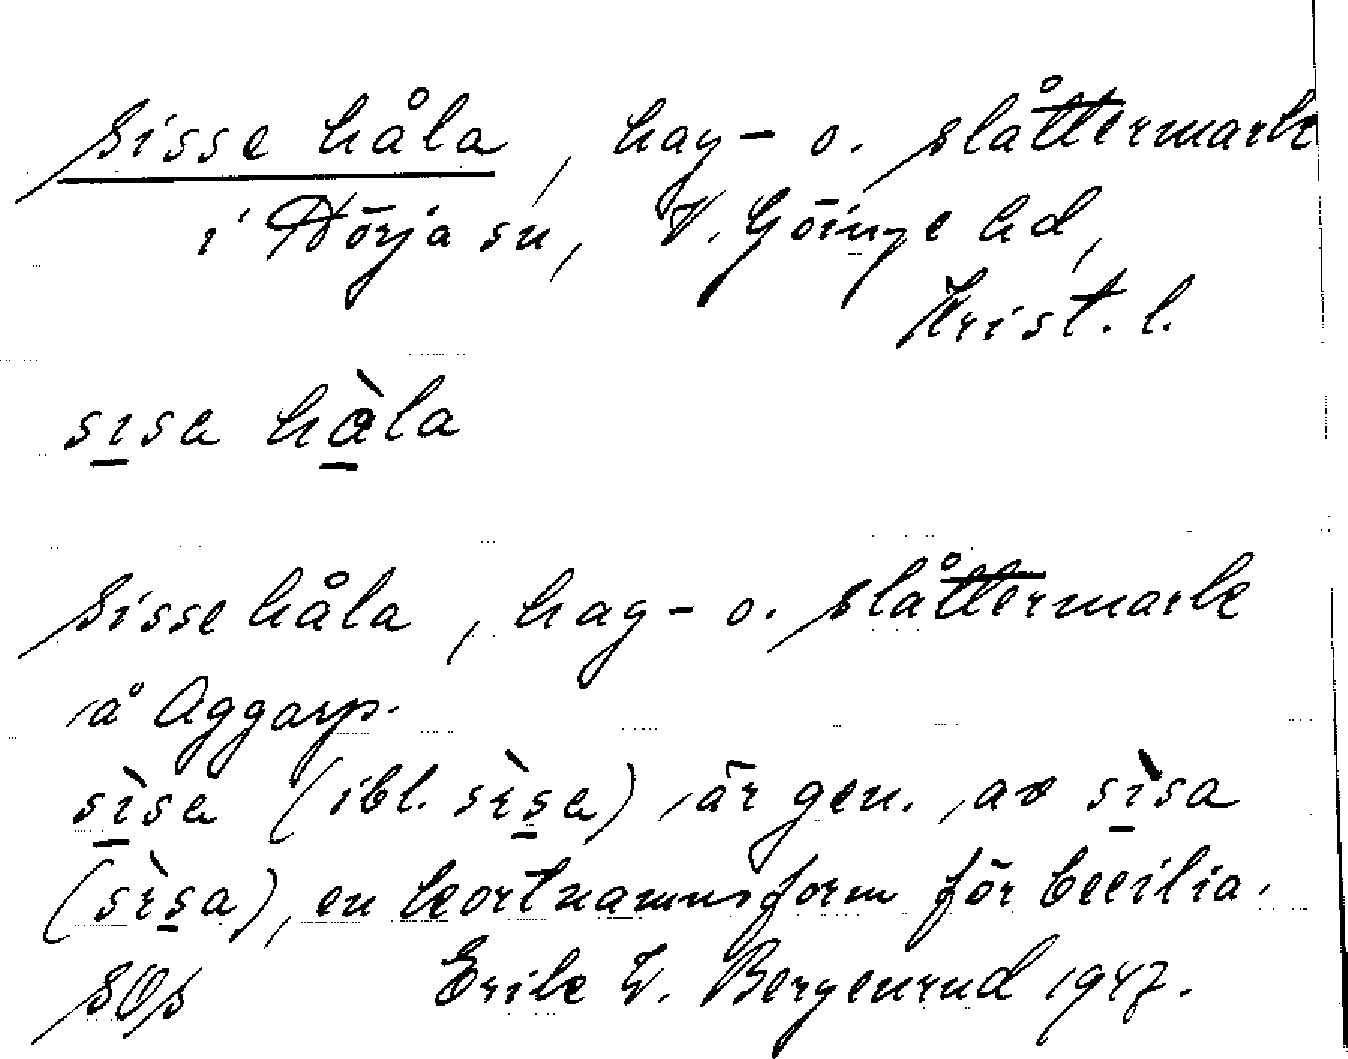 Sisse håla, hag- o. slåttermark
i Hörja sn, V. Göinge hd,
Krist. l.
sisa hàla
Sisse håla, hag- o. slåttermark
å Aggarp.
sìsa (ibl. sìsa) är gen. av sìsa
(sìsa), en kortnamnsform för Cecilia.
SOs Erik W. Bergenrud 1947.